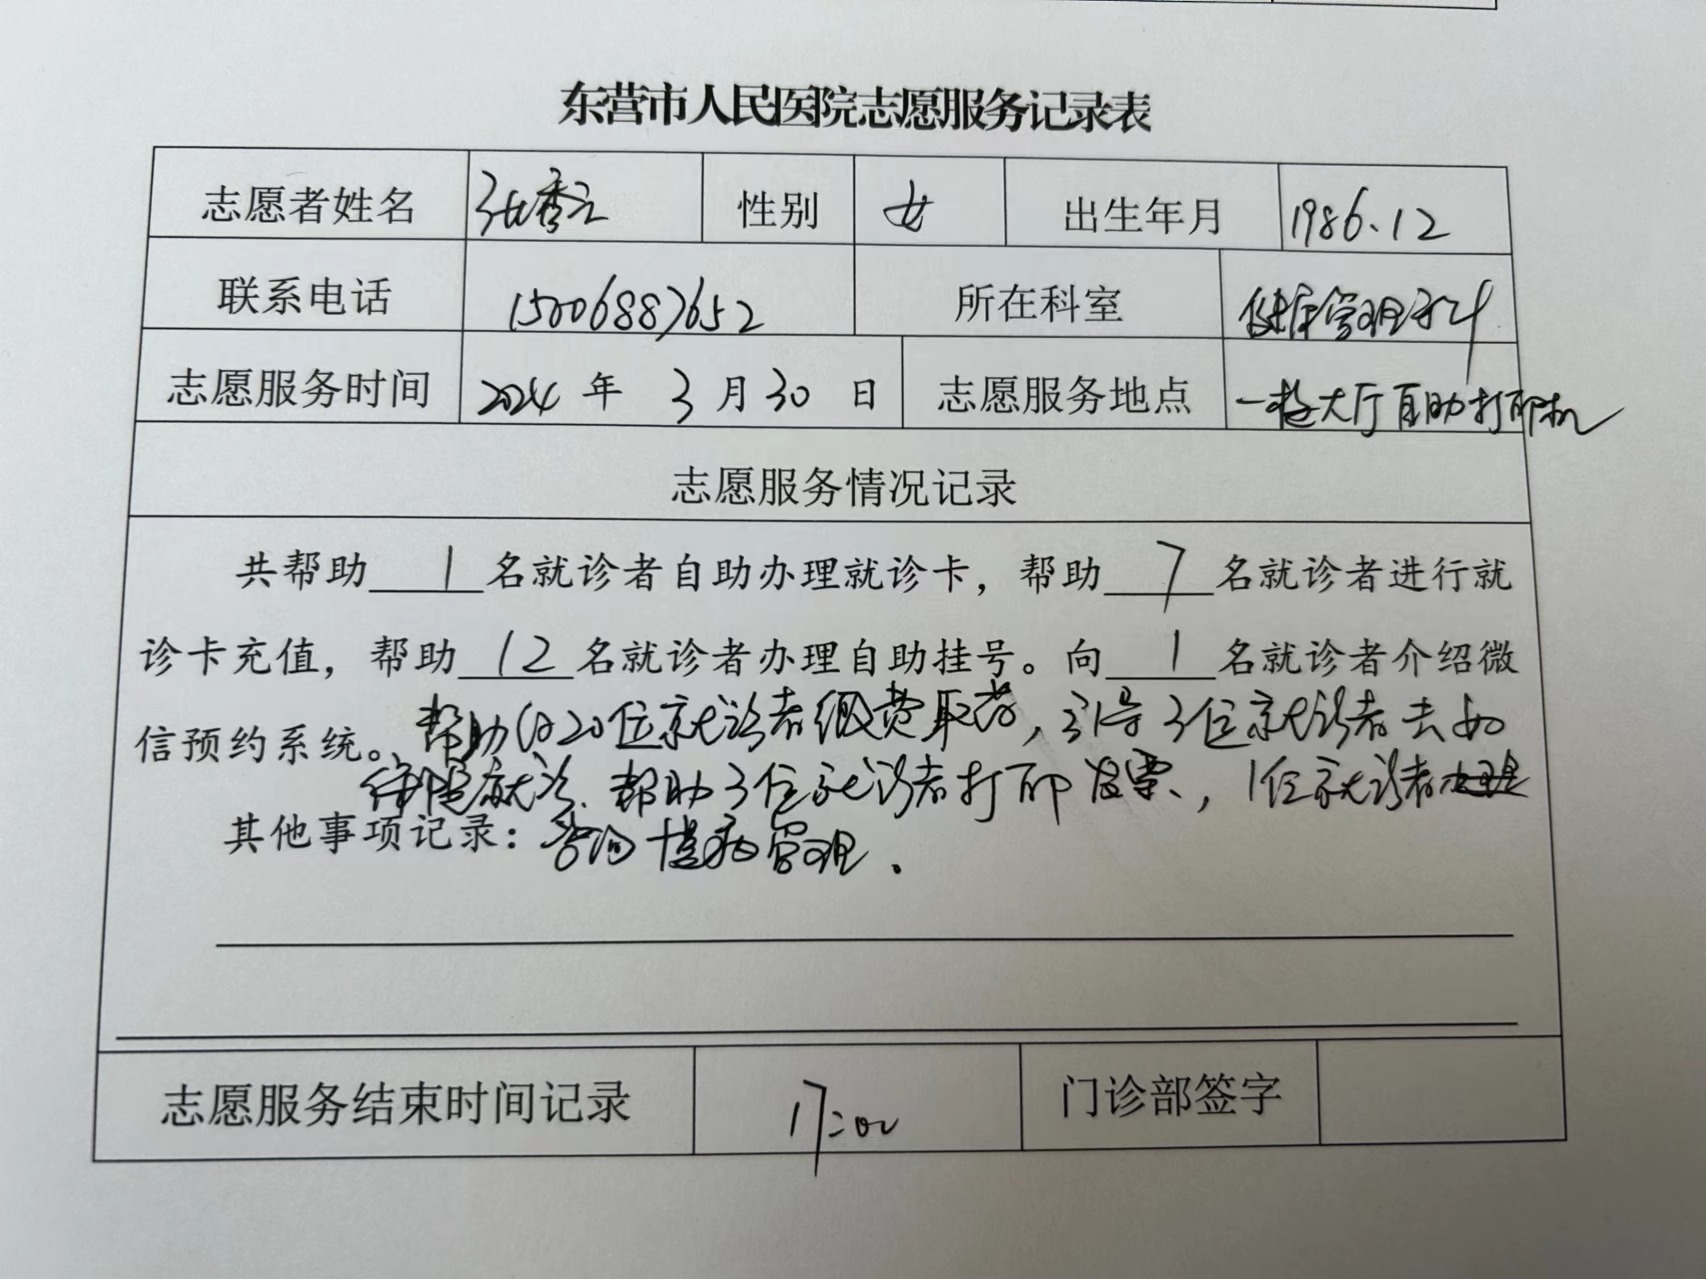 东营市人民医院志愿服务记录表
志愿者姓名 张秀云 性别 女 出生年月 1986.12
联系电话 15006887652 所在科室 健康管理科
志愿服务时间 2024年3月30日 志愿服务地点 一楼大厅自助打印机
志愿服务情况记录
共帮助1名就诊者自助办理就诊卡，帮助7名就诊者进行就
诊卡充值，帮助12名就诊者办理自助挂号。向1名就诊者介绍微
信预约系统。帮助约20位就诊者缴费取药，引导3位就诊者去妇
保院就诊、帮助3位就诊者打印发票、，1位就诊者
其他事项记录：咨询慢病管理。
志愿服务结束时间记录 17:00 门诊部签字